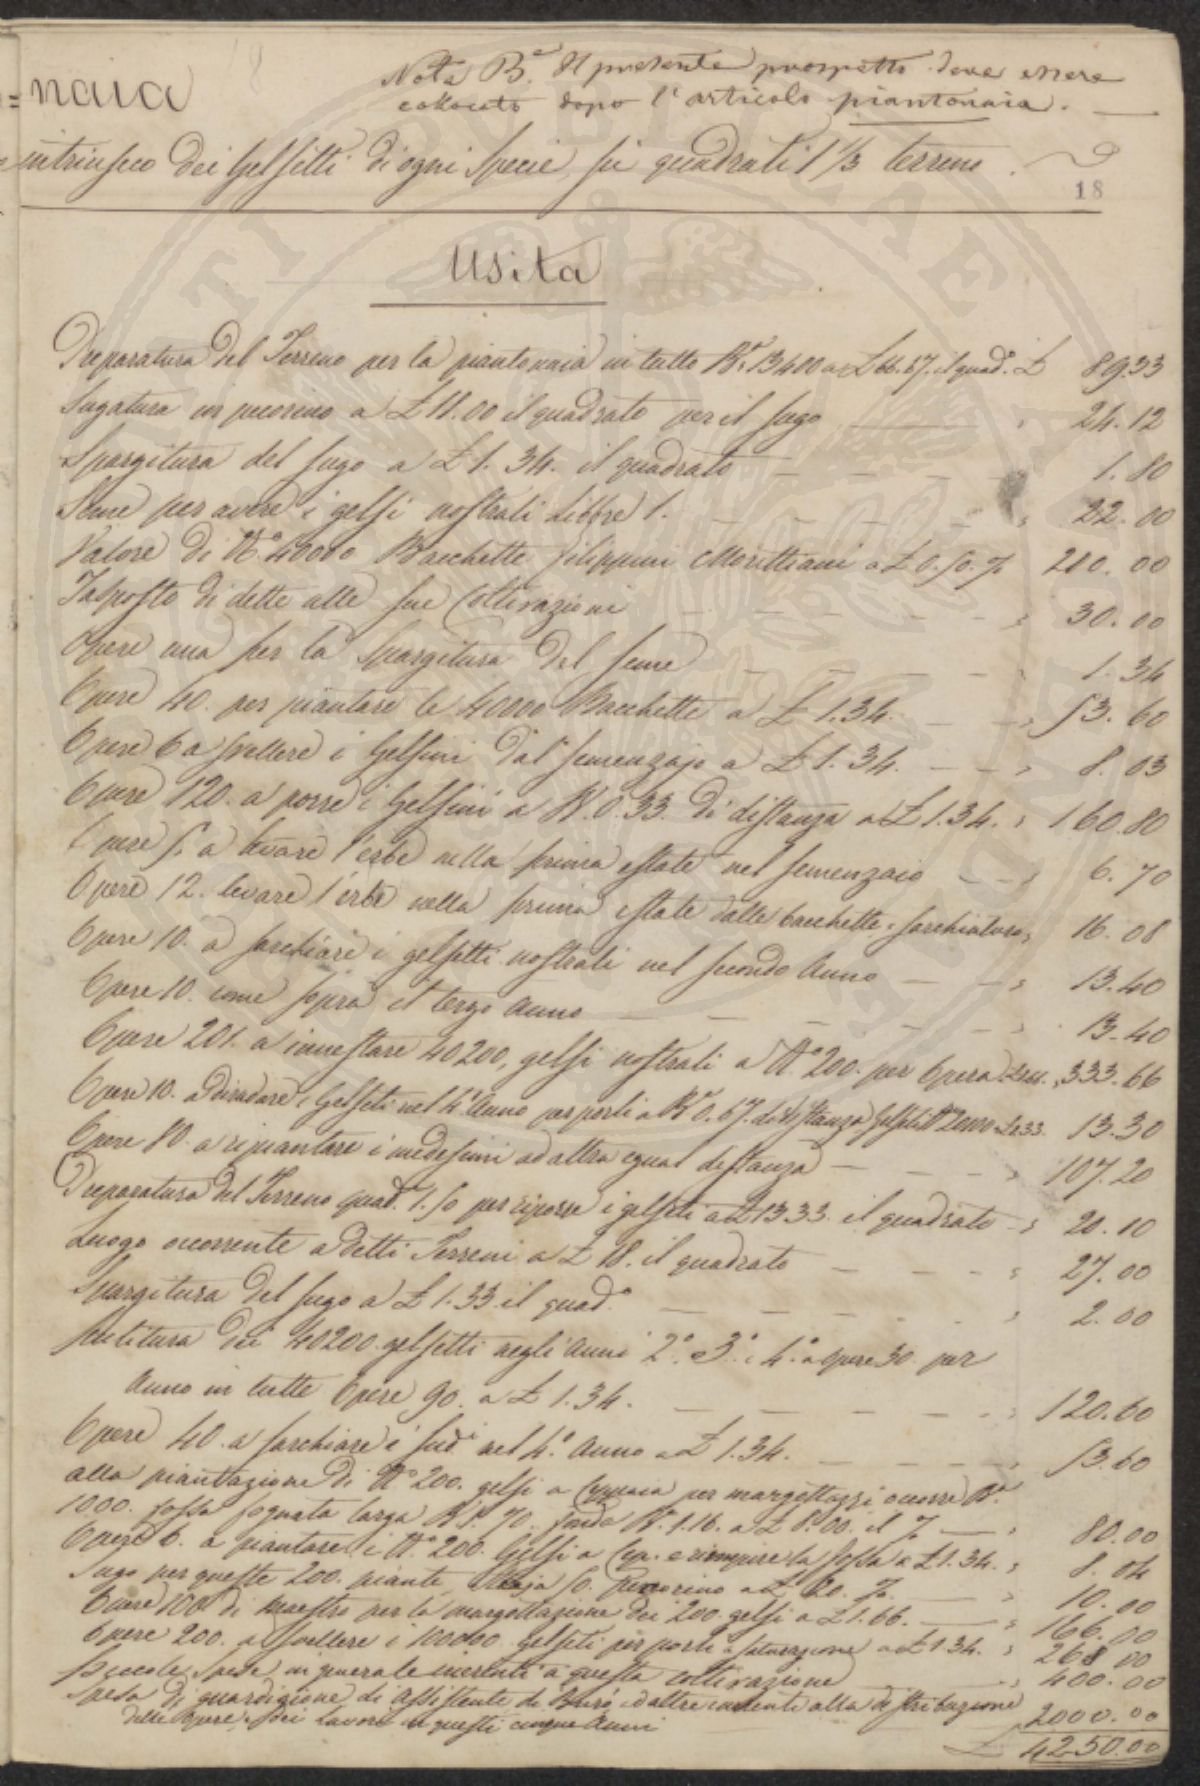 =naia
Nota B.ª Il presente prospetto deve essere
collocato dopo l'articolo piantonaia. —
intrinseco dei Gelsetti di ogni Specie, su quadrati 1 1/3 terreno.
18
Usita
Preparatura del Terreno per la piantonaia in tutto B.ª 13400 a £ 66.67. il quad.º £ 89.33
Sugatura in pecorino a £ 18.00 il quadrato per il sugo 24.12
Spargitura del sugo a £ 1.34. il quadrato 1.80
Seme per avere i gelsi nostrali Libbre 1. 22.00
Valore di N.º 40000 Bacchette Filippini Morettiani a £ 0.50. % 200.00
Trasposto di dette alle sue Coltivazioni 30.00
Opere una per la Spargitura del seme 1.34
Opere 40. per piantare le 40000 Bacchette a £ 1.34. 53.60
Opere 6 a svellere i Gelsini dal semenzajo a £ 1.34. 8.03
Opere 120. a porre i Gelsini a B. 0.33. di distanza a £ 1.34. 160.80
Opere 5. a levare l'erbe nella prima estate nel semenzaio 6.70
Opere 12. levare l'erbe nella prima estate dalle bacchette, sarchiatura 16.08
Opere 10. a sarchiare i gelsetti nostrali nel secondo Anno 13.40
Opere 10. come sopra il terzo Anno 13.40
Opere 201. a innestare 40200, gelsi nostrali a N.º 200. per Opera 333.66
Opere 10. a diradare i Gelseti nel 4.º Anno per porli a B.ª 0.67. di distanza 13.30
Opere 80. a ripiantare i medesimi ad altra egual distanza 107.20
Preparatura del Terreno quad.ª 1.50 per riporre i gelseti a £ 13 33. il quadrato 20.10
Luogo occorrente a detti Terreni a £ 18. il quadrato 27.00
Spargitura del sugo a £ 1.33 il quad.º 2.00
Putitura dei 40200. gelsetti negli Anni 2.º e 3.º e 4.º a opere 30. per
Anno in tutte Opere 90. a £ 1.34. 120.60
Opere 40. a sarchiare i sud.ⁱ nel 4.º Anno a £ 1.34. 53.60
alla piantazione di N.º 200. gelsi a Ceppaia per margottazzi occorre B.ª
1000. fossa fognata larga B. 1. 70. fonda B. 1.16. a £ 8.00. il % 80.00
Opere 6. a piantare i N.º 200. Gelsi a Cep. e riempire la fossa a £ 1.34. 8.04
Sugo per queste 200. piante, Staja 50. Pecorino a £ 20. % 10.00
Opere 100 di Maestro per la margottazione dei 200. gelsi a £ 1.66. 166.00
Opere 200. a svellere i 100000 gelseti per porli a a £ 1.34. 268 00
Piccole Spese in generale inerenti a questa coltivazione 400.00
Spesa di guardigione, di Assistente di Burò ed altre inerenti alla distribuzione
delle Opere, e dei Lavori in questi cinque Anni 2000.00
£ 4250.00